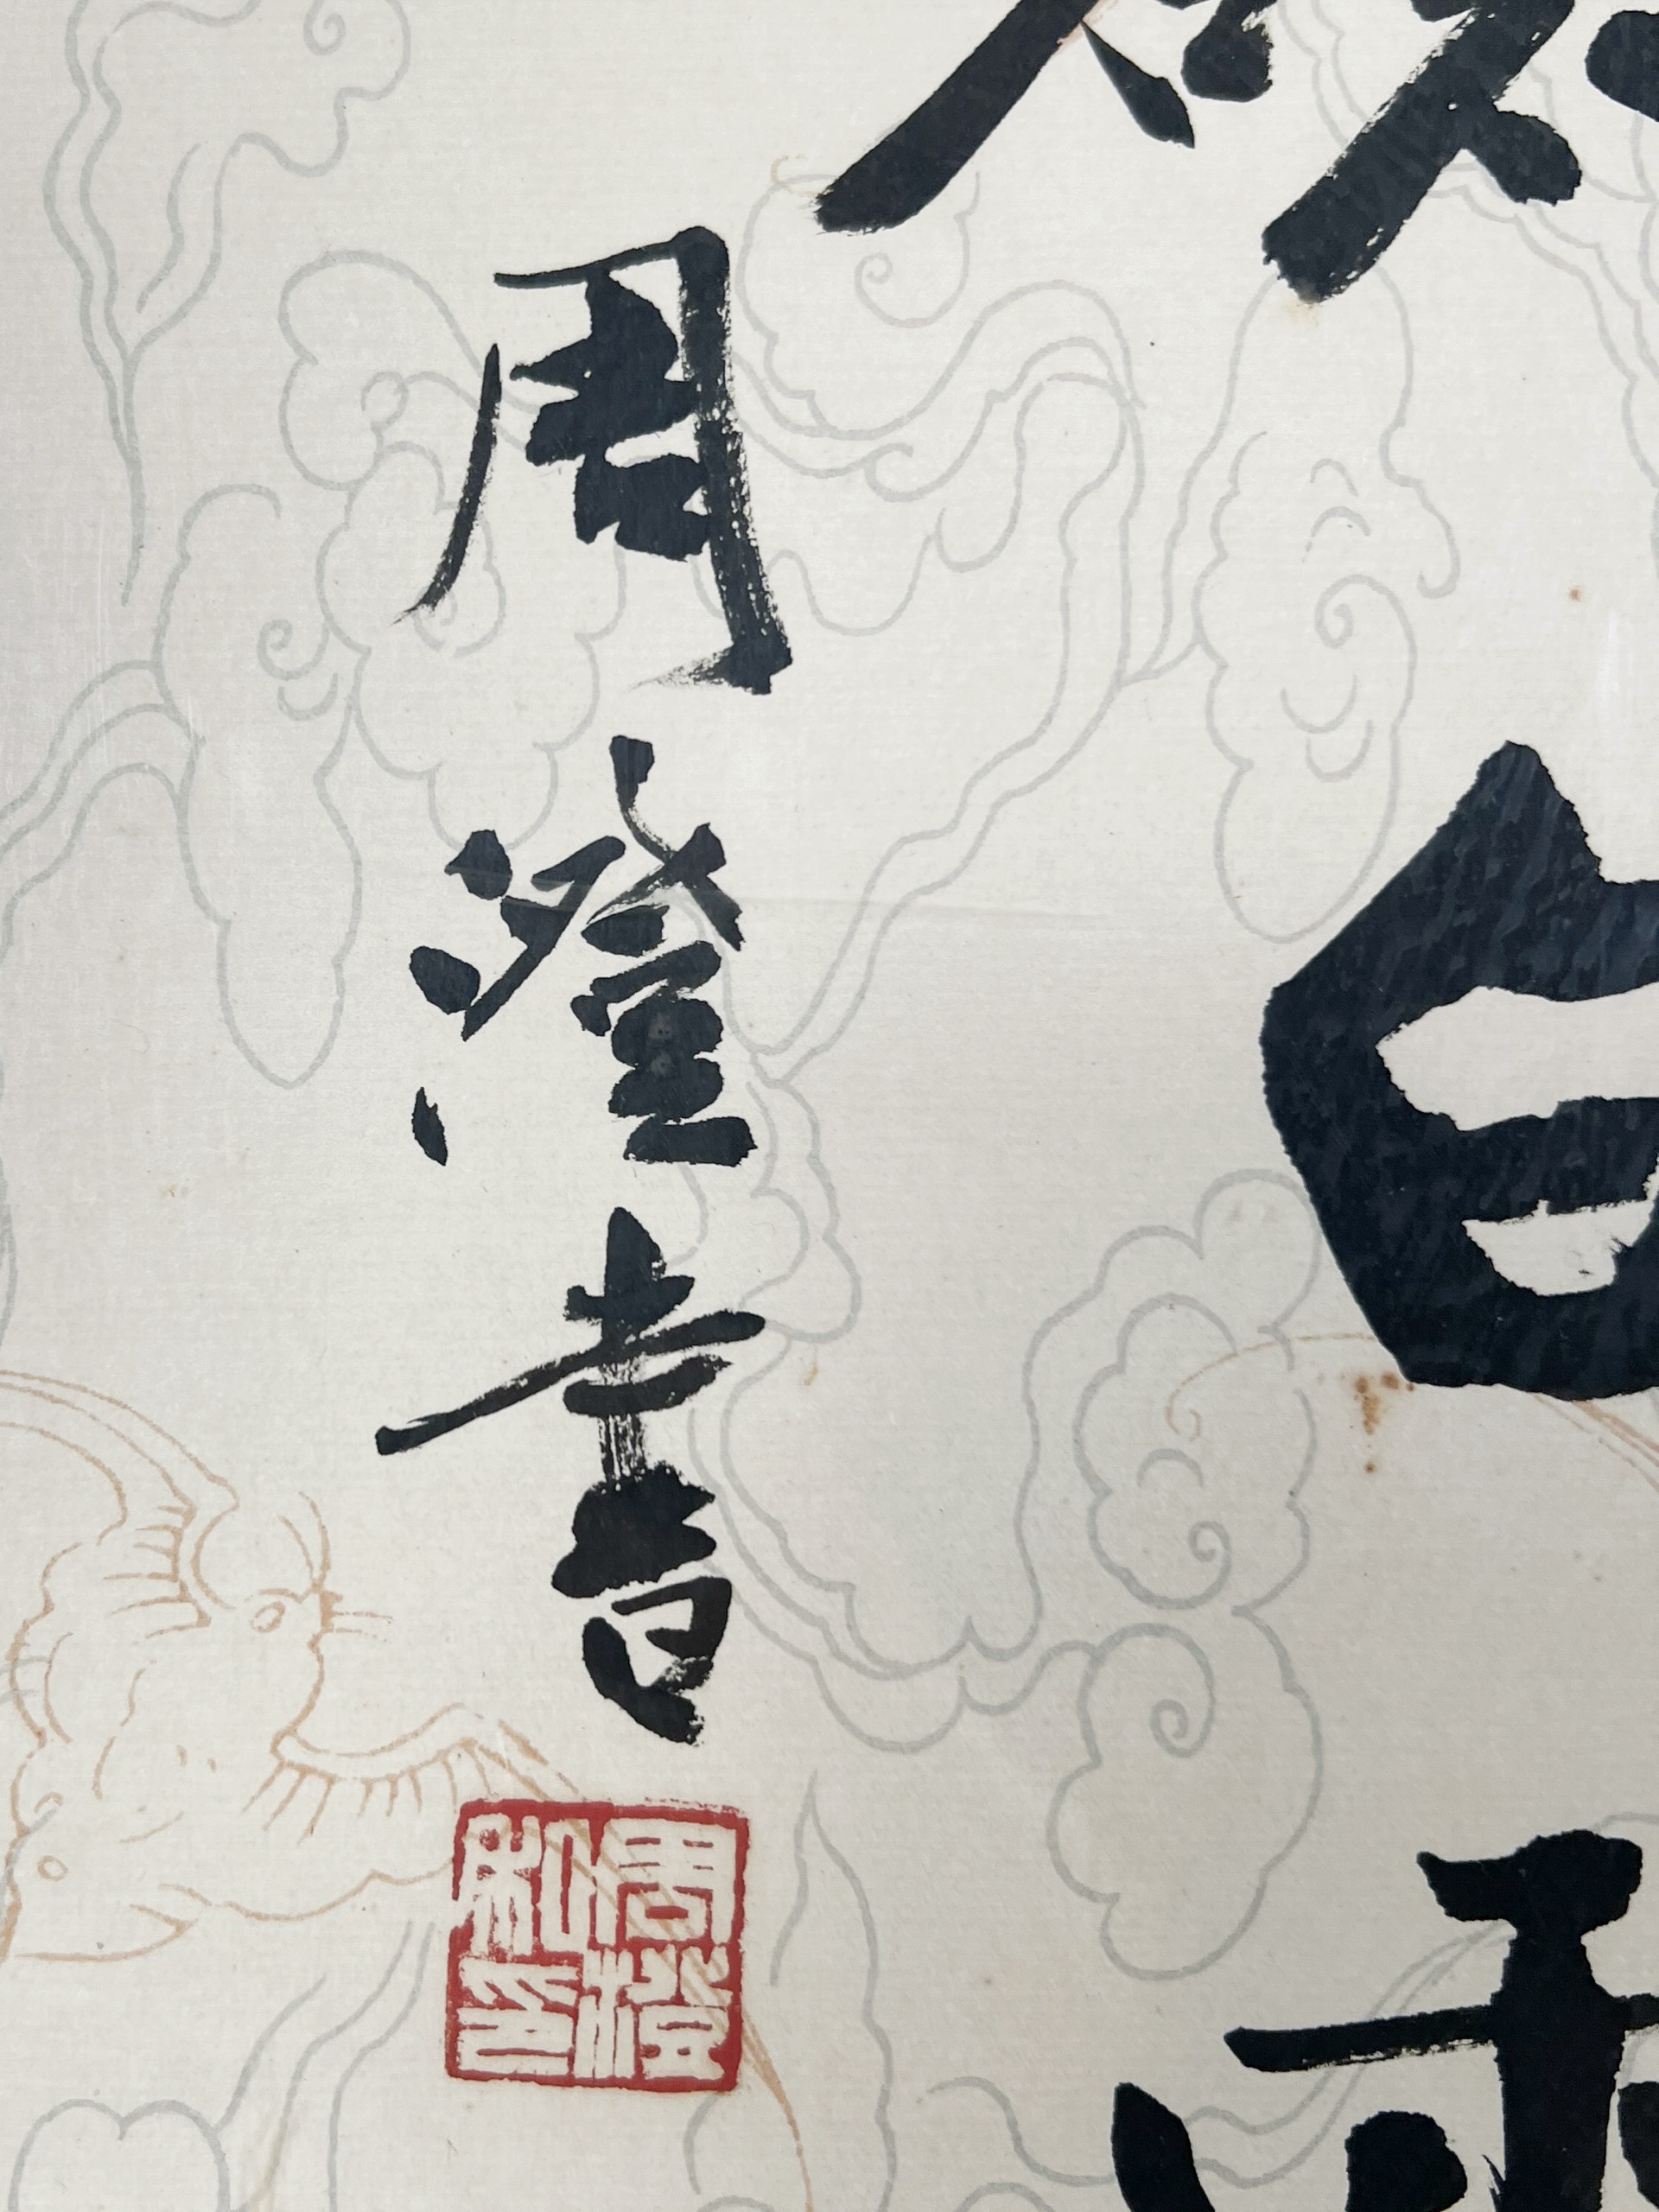 白
周澄書
周澄
私印